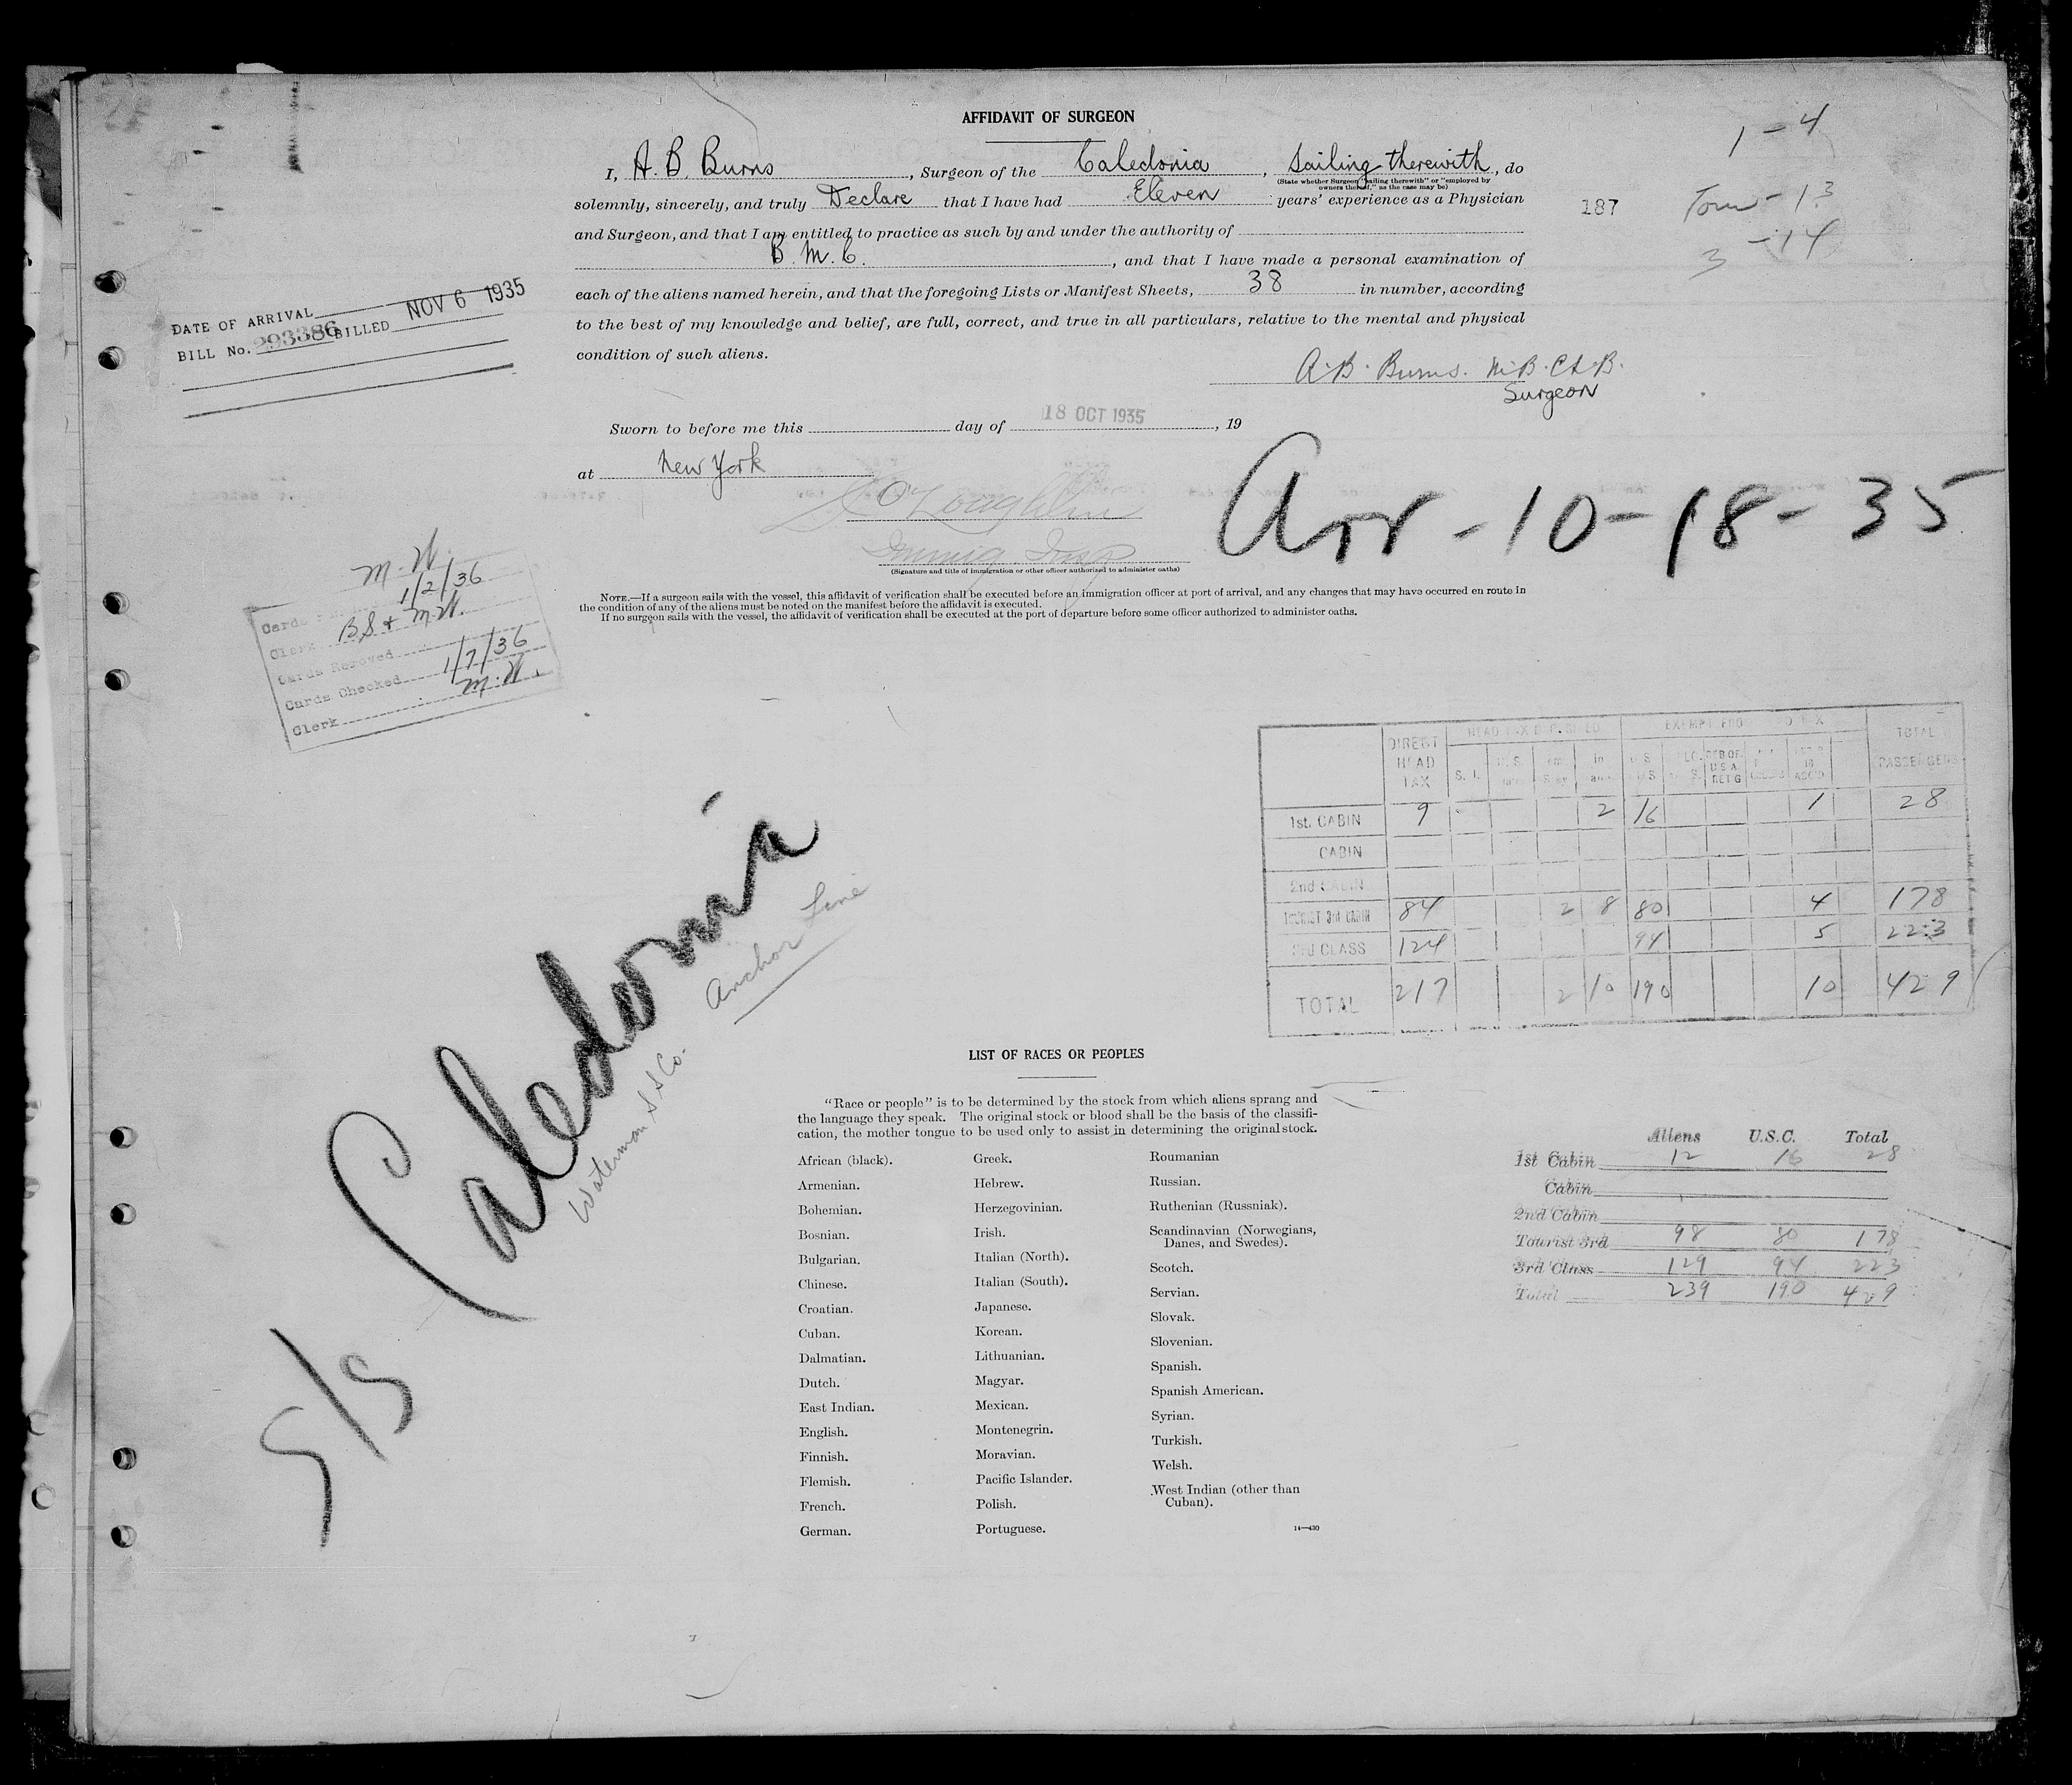 AFFIDAVIT OF SURGEON
1 - 4
I, A. B. Burns, Surgeon of the Caledonia, Sailing therewith, do
(State whether Surgeon "sailing therewith" or "employed by owners thereof," as the case may be)
solemnly, sincerely, and truly Declare that I have had Eleven years' experience as a Physician
187
Tour - 13
3 - 14
and Surgeon, and that I am entitled to practice as such by and under the authority of
B. M. C., and that I have made a personal examination of
each of the aliens named herein, and that the foregoing Lists or Manifest Sheets, 38 in number, according
to the best of my knowledge and belief, are full, correct, and true in all particulars, relative to the mental and physical
condition of such aliens.
DATE OF ARRIVAL
BILL No. 293386 BILLED NOV 6 1935
A. B. Burns. M.B. Ch.B.
Surgeon
Sworn to before me this day of 18 OCT 1935, 19
at New York
O'Loughlin
Immig. Insp
(Signature and title of immigration or other officer authorized to administer oaths)
Arr - 10 - 18 - 35
NOTE.—If a surgeon sails with the vessel, this affidavit of verification shall be executed before an immigration officer at port of arrival, and any changes that may have occurred en route in
the condition of any of the aliens must be noted on the manifest before the affidavit is executed.
If no surgeon sails with the vessel, the affidavit of verification shall be executed at the port of departure before some officer authorized to administer oaths.
M. W.
Cards 1/2/36
Clerk B.S & M.W.
Cards Removed
Cards Checked 1/7/36
Clerk M.W.
DIRECT HEAD TAX
S. I.
TOTAL PASSENGERS
1st. CABIN 9 2 16 1 28
CABIN
2nd CABIN
TOURIST 3rd CABIN 84 2 8 80 4 178
3rd CLASS 124 94 5 223
TOTAL 217 2 10 190 10 429
S/S Caledonia
Anchor Line
Waterman S S Co.
LIST OF RACES OR PEOPLES
"Race or people" is to be determined by the stock from which aliens sprang and
the language they speak. The original stock or blood shall be the basis of the classifi-
cation, the mother tongue to be used only to assist in determining the original stock.
African (black).
Armenian.
Bohemian.
Bosnian.
Bulgarian.
Chinese.
Croatian.
Cuban.
Dalmatian.
Dutch.
East Indian.
English.
Finnish.
Flemish.
French.
German.
Greek.
Hebrew.
Herzegovinian.
Irish.
Italian (North).
Italian (South).
Japanese.
Korean.
Lithuanian.
Magyar.
Mexican.
Montenegrin.
Moravian.
Pacific Islander.
Polish.
Portuguese.
Roumanian
Russian.
Ruthenian (Russniak).
Scandinavian (Norwegians,
Danes, and Swedes).
Scotch.
Servian.
Slovak.
Slovenian.
Spanish.
Spanish American.
Syrian.
Turkish.
Welsh.
West Indian (other than
Cuban).
14—430
Aliens U.S.C. Total
1st Cabin 12 16 28
Cabin
2nd Cabin
Tourist 3rd 98 80 178
3rd Class 129 94 223
Total 239 190 429